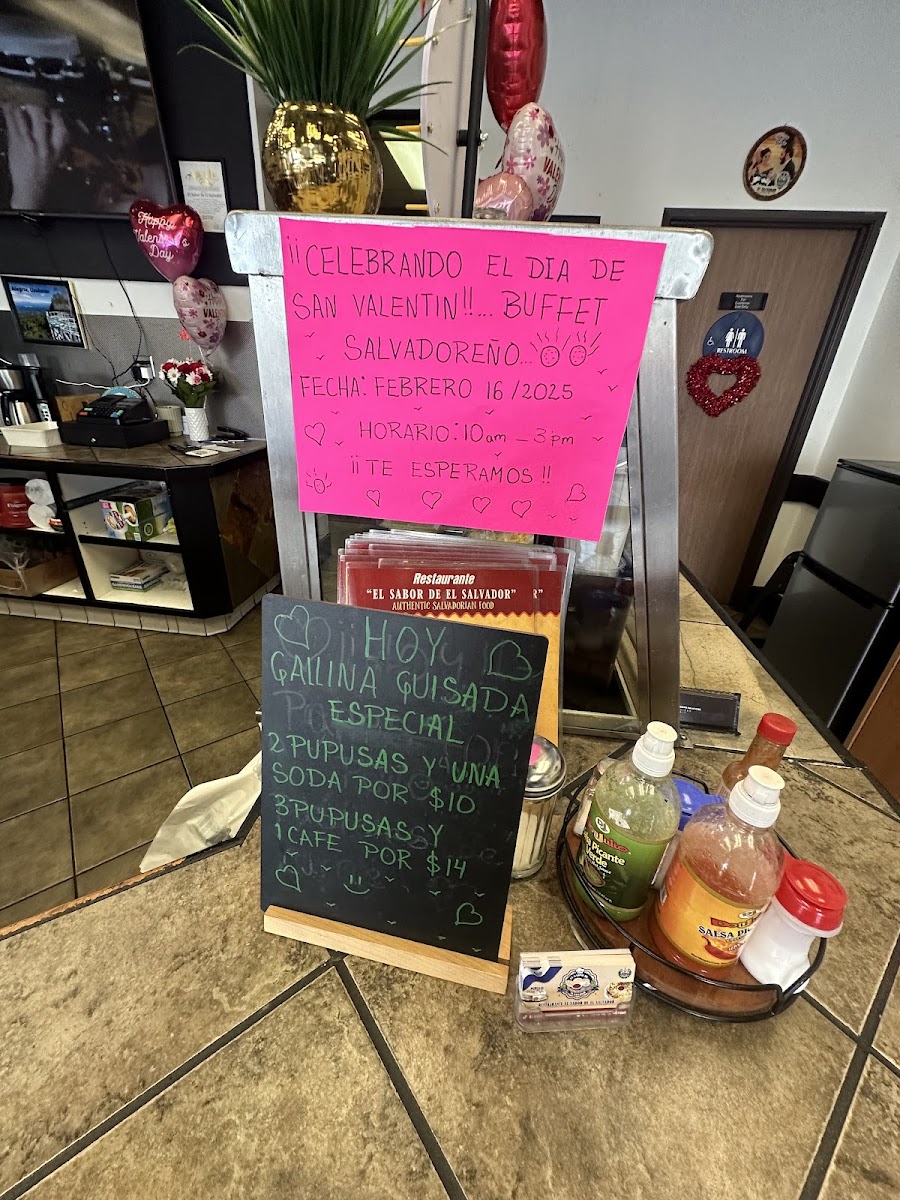 ¡¡CELEBRANDO EL DIA DE
SAN VALENTIN!!... BUFFET
SALVADOREÑO...
FECHA: FEBRERO 16/2025
HORARIO: 10am - 3pm
¡¡TE ESPERAMOS!!
Happy
Valentine's
Day
RESTROOM
Restaurante
"EL SABOR DE EL SALVADOR"
AUTHENTIC SALVADORIAN FOOD
HOY
GALLINA GUISADA
ESPECIAL
2 PUPUSAS Y UNA
SODA POR $10
3 PUPUSAS Y
1 CAFE POR $14
Picante
Verde
SALSA
RESTAURANTE EL SABOR DE EL SALVADOR